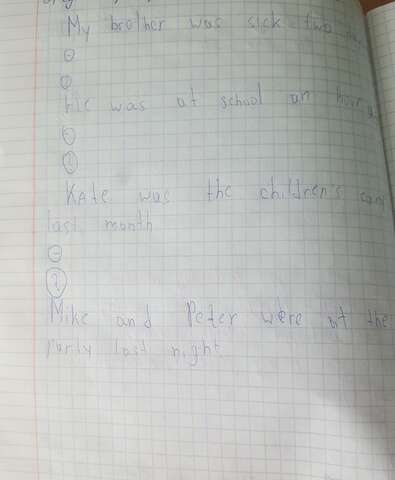 My brother was sick two
⊖
?
He was at school an hour
⊖
?
Kate was the children's
last month
⊖
?
Mike and Peter were at the
party last night